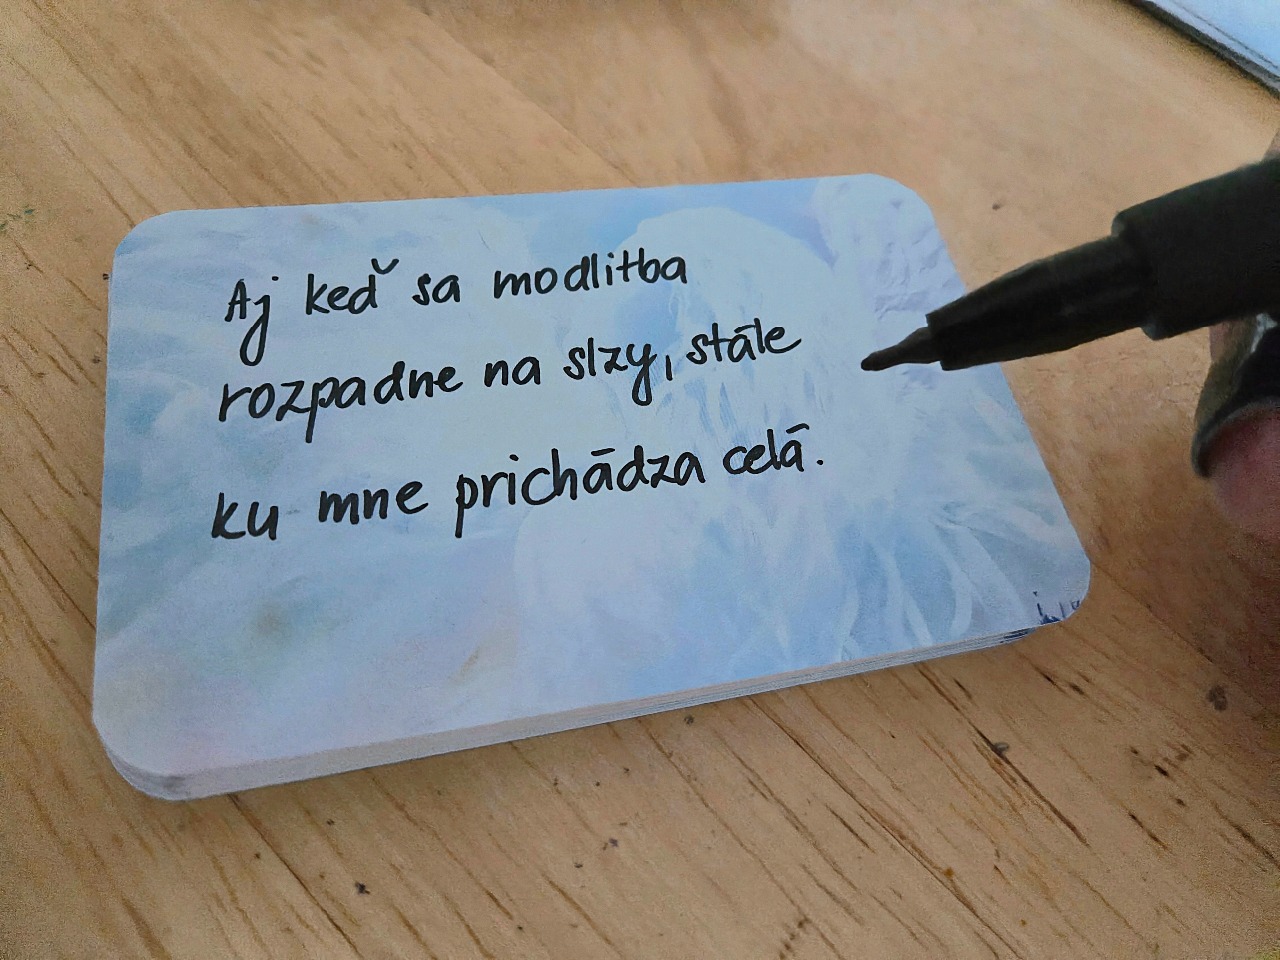 Aj keď sa modlitba
rozpadne na slzy, stále
ku mne prichádza celá.